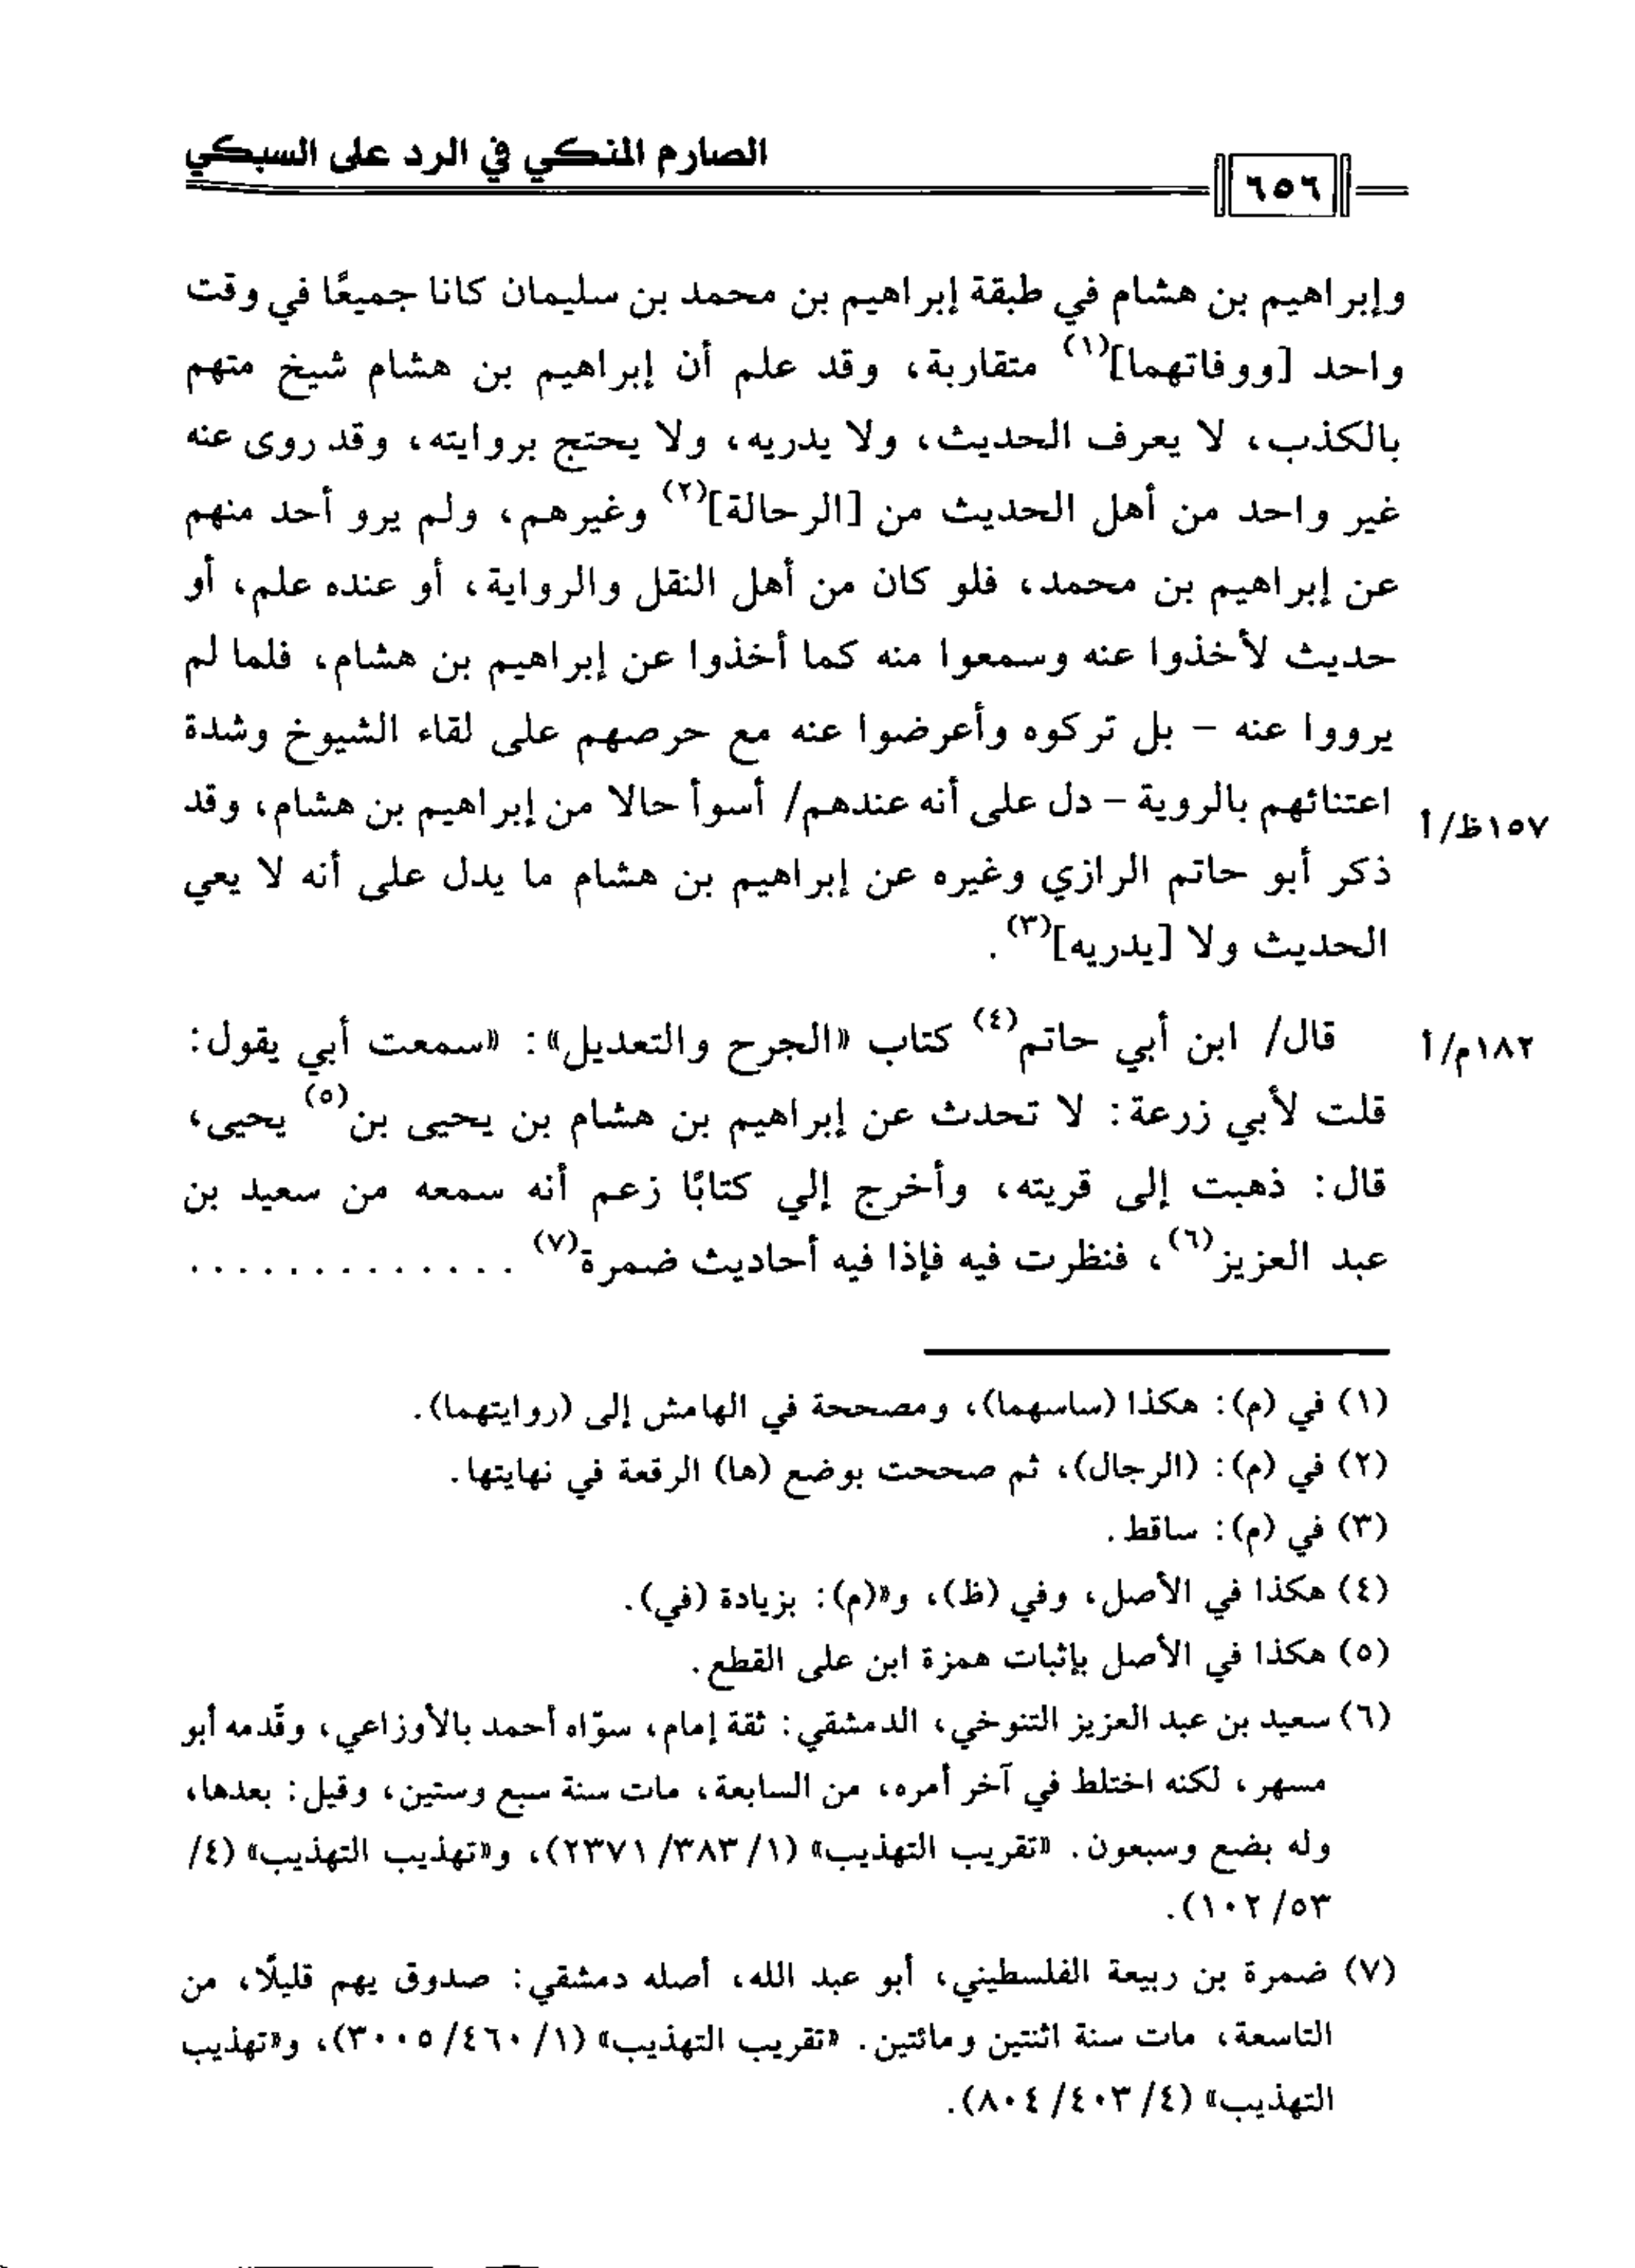 الصارم المنكي في الرد على السبكي
٦٥٦
وإبراهيم بن هشام في طبقة إبراهيم بن محمد بن سليمان كانا جميعًا في وقت
واحد [ووفاتهما](١) متقاربة، وقد علم أن إبراهيم بن هشام شيخ متهم
بالكذب، لا يعرف الحديث، ولا يدريه، ولا يحتج بروايته، وقد روى عنه
غير واحد من أهل الحديث من [الرحالة](٢) وغيرهم، ولم يرو أحد منهم
عن إبراهيم بن محمد، فلو كان من أهل النقل والرواية، أو عنده علم، أو
حديث لأخذوا عنه وسمعوا منه كما أخذوا عن إبراهيم بن هشام، فلما لم
يرووا عنه – بل تركوه وأعرضوا عنه مع حرصهم على لقاء الشيوخ وشدة
اعتنائهم بالروية – دل على أنه عندهم/ أسوأ حالا من إبراهيم بن هشام، وقد
١٥٧ظ/أ
ذكر أبو حاتم الرازي وغيره عن إبراهيم بن هشام ما يدل على أنه لا يعي
الحديث ولا [يدريه](٣).
قال/ ابن أبي حاتم(٤) كتاب «الجرح والتعديل»: «سمعت أبي يقول:
١٨٢م/أ
قلت لأبي زرعة: لا تحدث عن إبراهيم بن هشام بن يحيى بن(٥) يحيى،
قال: ذهبت إلى قريته، وأخرج إلي كتابًا زعم أنه سمعه من سعيد بن
عبد العزيز(٦)، فنظرت فيه فإذا فيه أحاديث ضمرة(٧) .............
(١) في (م): هكذا (ساسهما)، ومصححة في الهامش إلى (روايتهما).
(٢) في (م): (الرجال)، ثم صححت بوضع (ها) الرقعة في نهايتها.
(٣) في (م): ساقط.
(٤) هكذا في الأصل، وفي (ظ)، و«(م): بزيادة (في).
(٥) هكذا في الأصل بإثبات همزة ابن على القطع.
(٦) سعيد بن عبد العزيز التنوخي، الدمشقي: ثقة إمام، سوّاه أحمد بالأوزاعي، وقّدمه أبو
مسهر، لكنه اختلط في آخر أمره، من السابعة، مات سنة سبع وستين، وقيل: بعدها،
وله بضع وسبعون. «تقريب التهذيب» (١/ ٣٨٣/ ٢٣٧١)، و«تهذيب التهذيب» (٤/
٥٣/ ١٠٢).
(٧) ضمرة بن ربيعة الفلسطيني، أبو عبد الله، أصله دمشقي: صدوق يهم قليلًا، من
التاسعة، مات سنة اثنتين ومائتين. «تقريب التهذيب» (١/ ٤٦٠/ ٣٠٠٥)، و«تهذيب
التهذيب» (٤/ ٤٠٣/ ٨٠٤).